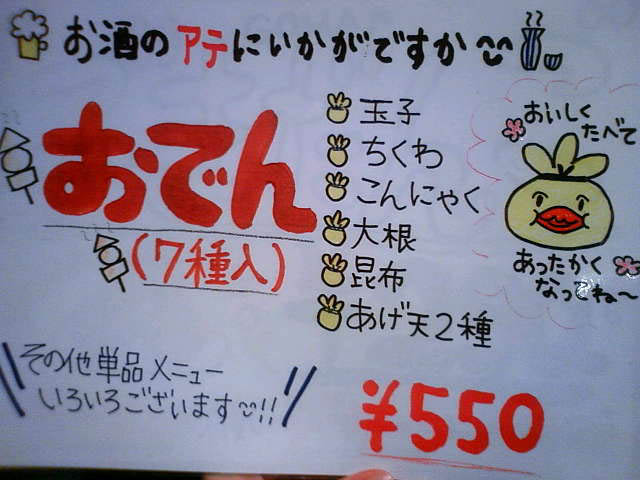 お酒のアテにいかがですか
おでん
(7種入)
玉子
ちくわ
こんにゃく
大根
昆布
あげ天2種
おいしく
たべて
あったかく
なってね〜
その他単品メニュー
いろいろございます!!
¥550